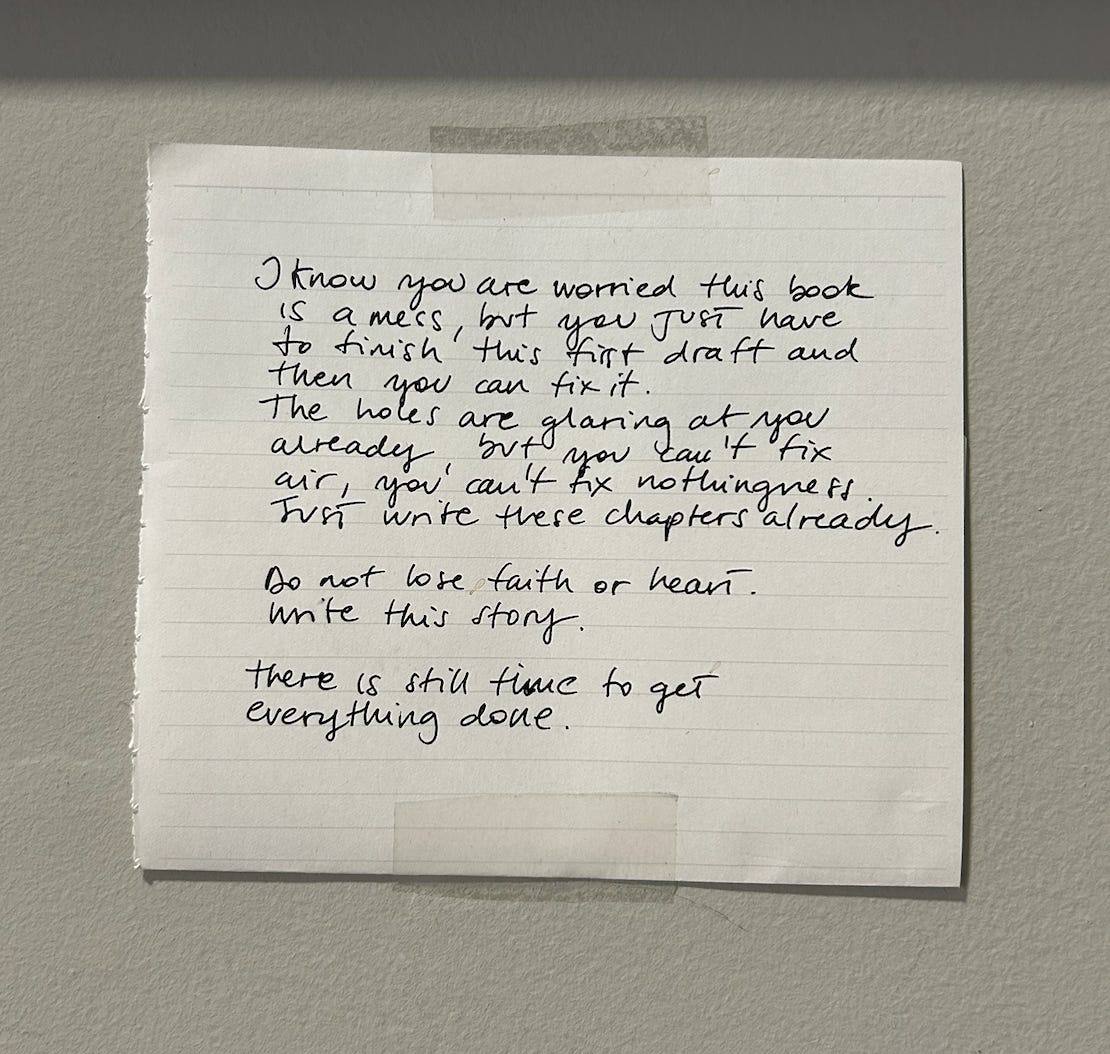 I know you are worried this book
is a mess, but you just have
to finish this first draft and
then you can fix it.
The holes are glaring at you
already, but you can't fix
air, you can't fix nothingness.
Just write these chapters already.
Do not lose faith or heart.
Write this story.
There is still time to get
everything done.